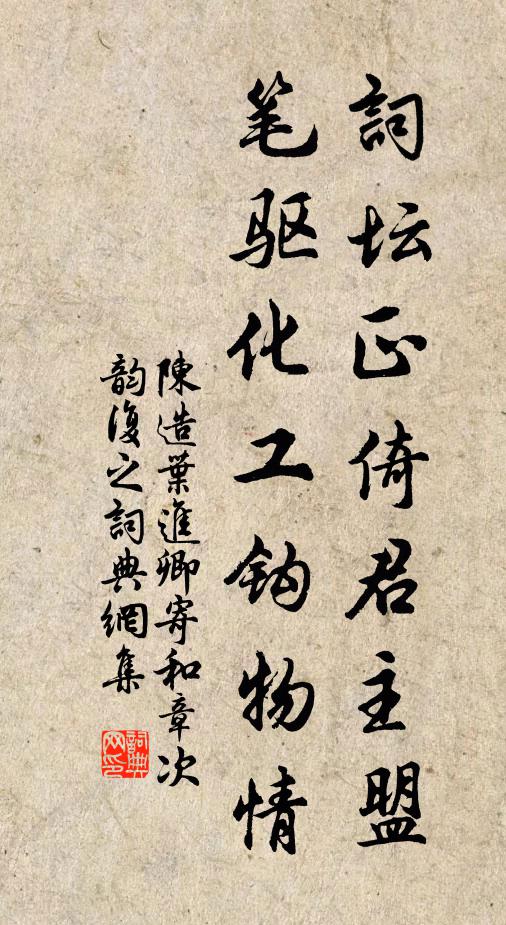 詞坛正倚君主盟
笔驱化工钩物情
陳造葉進卿寄和章次
韵復之詞典網集
詞典
网印